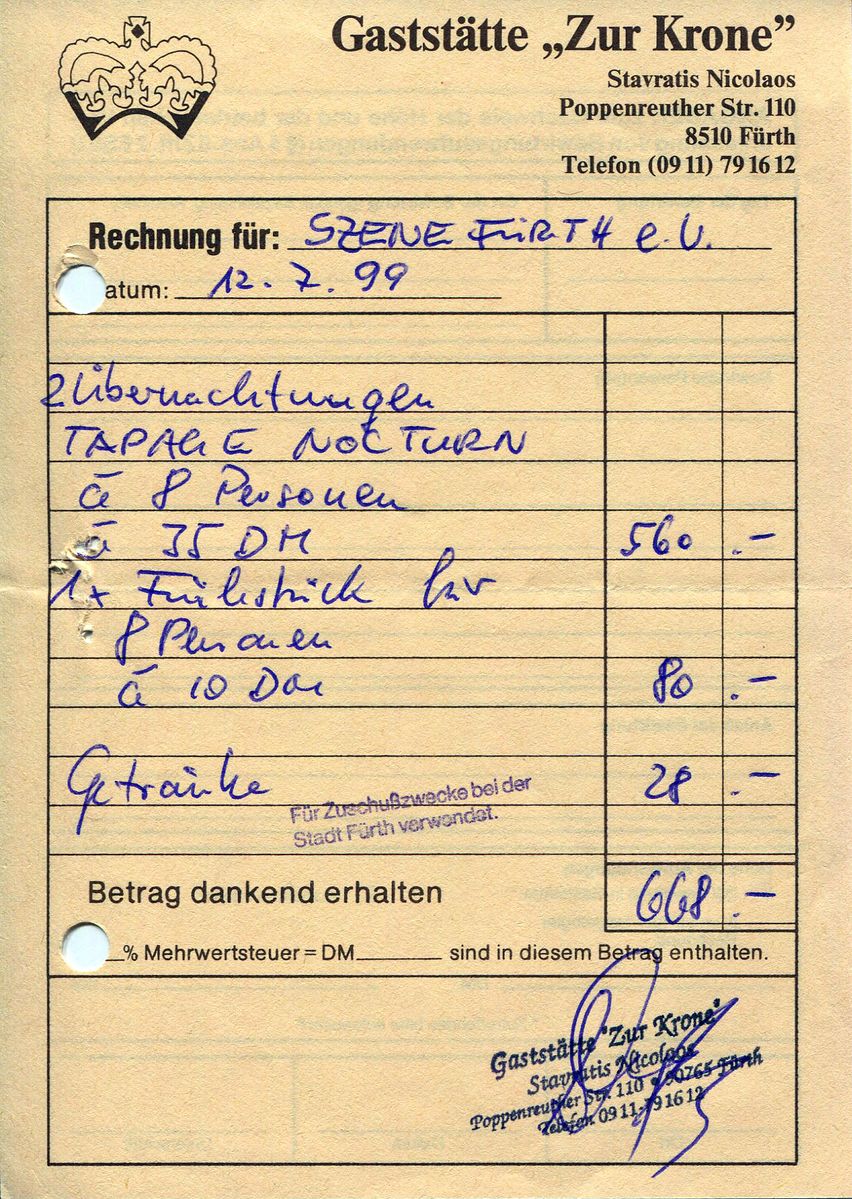 Gaststätte „Zur Krone”
Stavratis Nicolaos
Poppenreuther Str. 110
8510 Fürth
Telefon (09 11) 79 16 12
Rechnung für: SZENE FÜRTH e.V.
atum: 12.7.99
2 Übernachtungen
TAPAGE NOCTURN
à 8 Personen
à 35 DM 560 .-
1x Frühstück für
8 Personen
à 10 DM 80 .-
Getränke 28 .-
Für Zuschußzwecke bei der
Stadt Fürth verwendet.
Betrag dankend erhalten 668 .-
% Mehrwertsteuer = DM sind in diesem Betrag enthalten.
Gaststätte "Zur Krone"
Stavratis Nicolaos
Poppenreuther Str. 110 • 90765 Fürth
Telefon 09 11-79 16 12